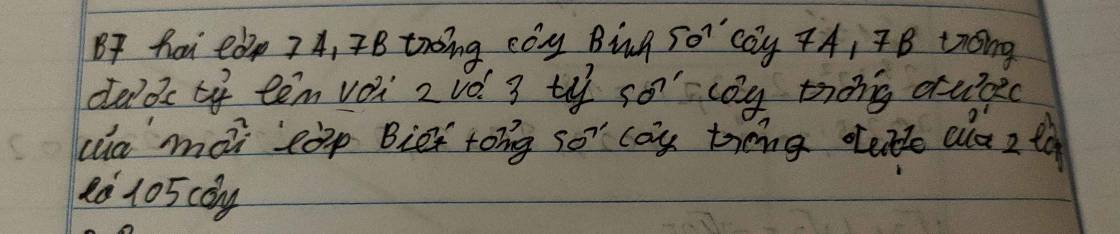 B7 hai lớp 7A, 7B trồng cây Biết số cây 7A, 7B trồng
được tỷ lên với 2 và 3 tỷ số cây trồng được
của mỗi lớp Biết tổng số cây trồng được của 2 lớp
là 105 cây